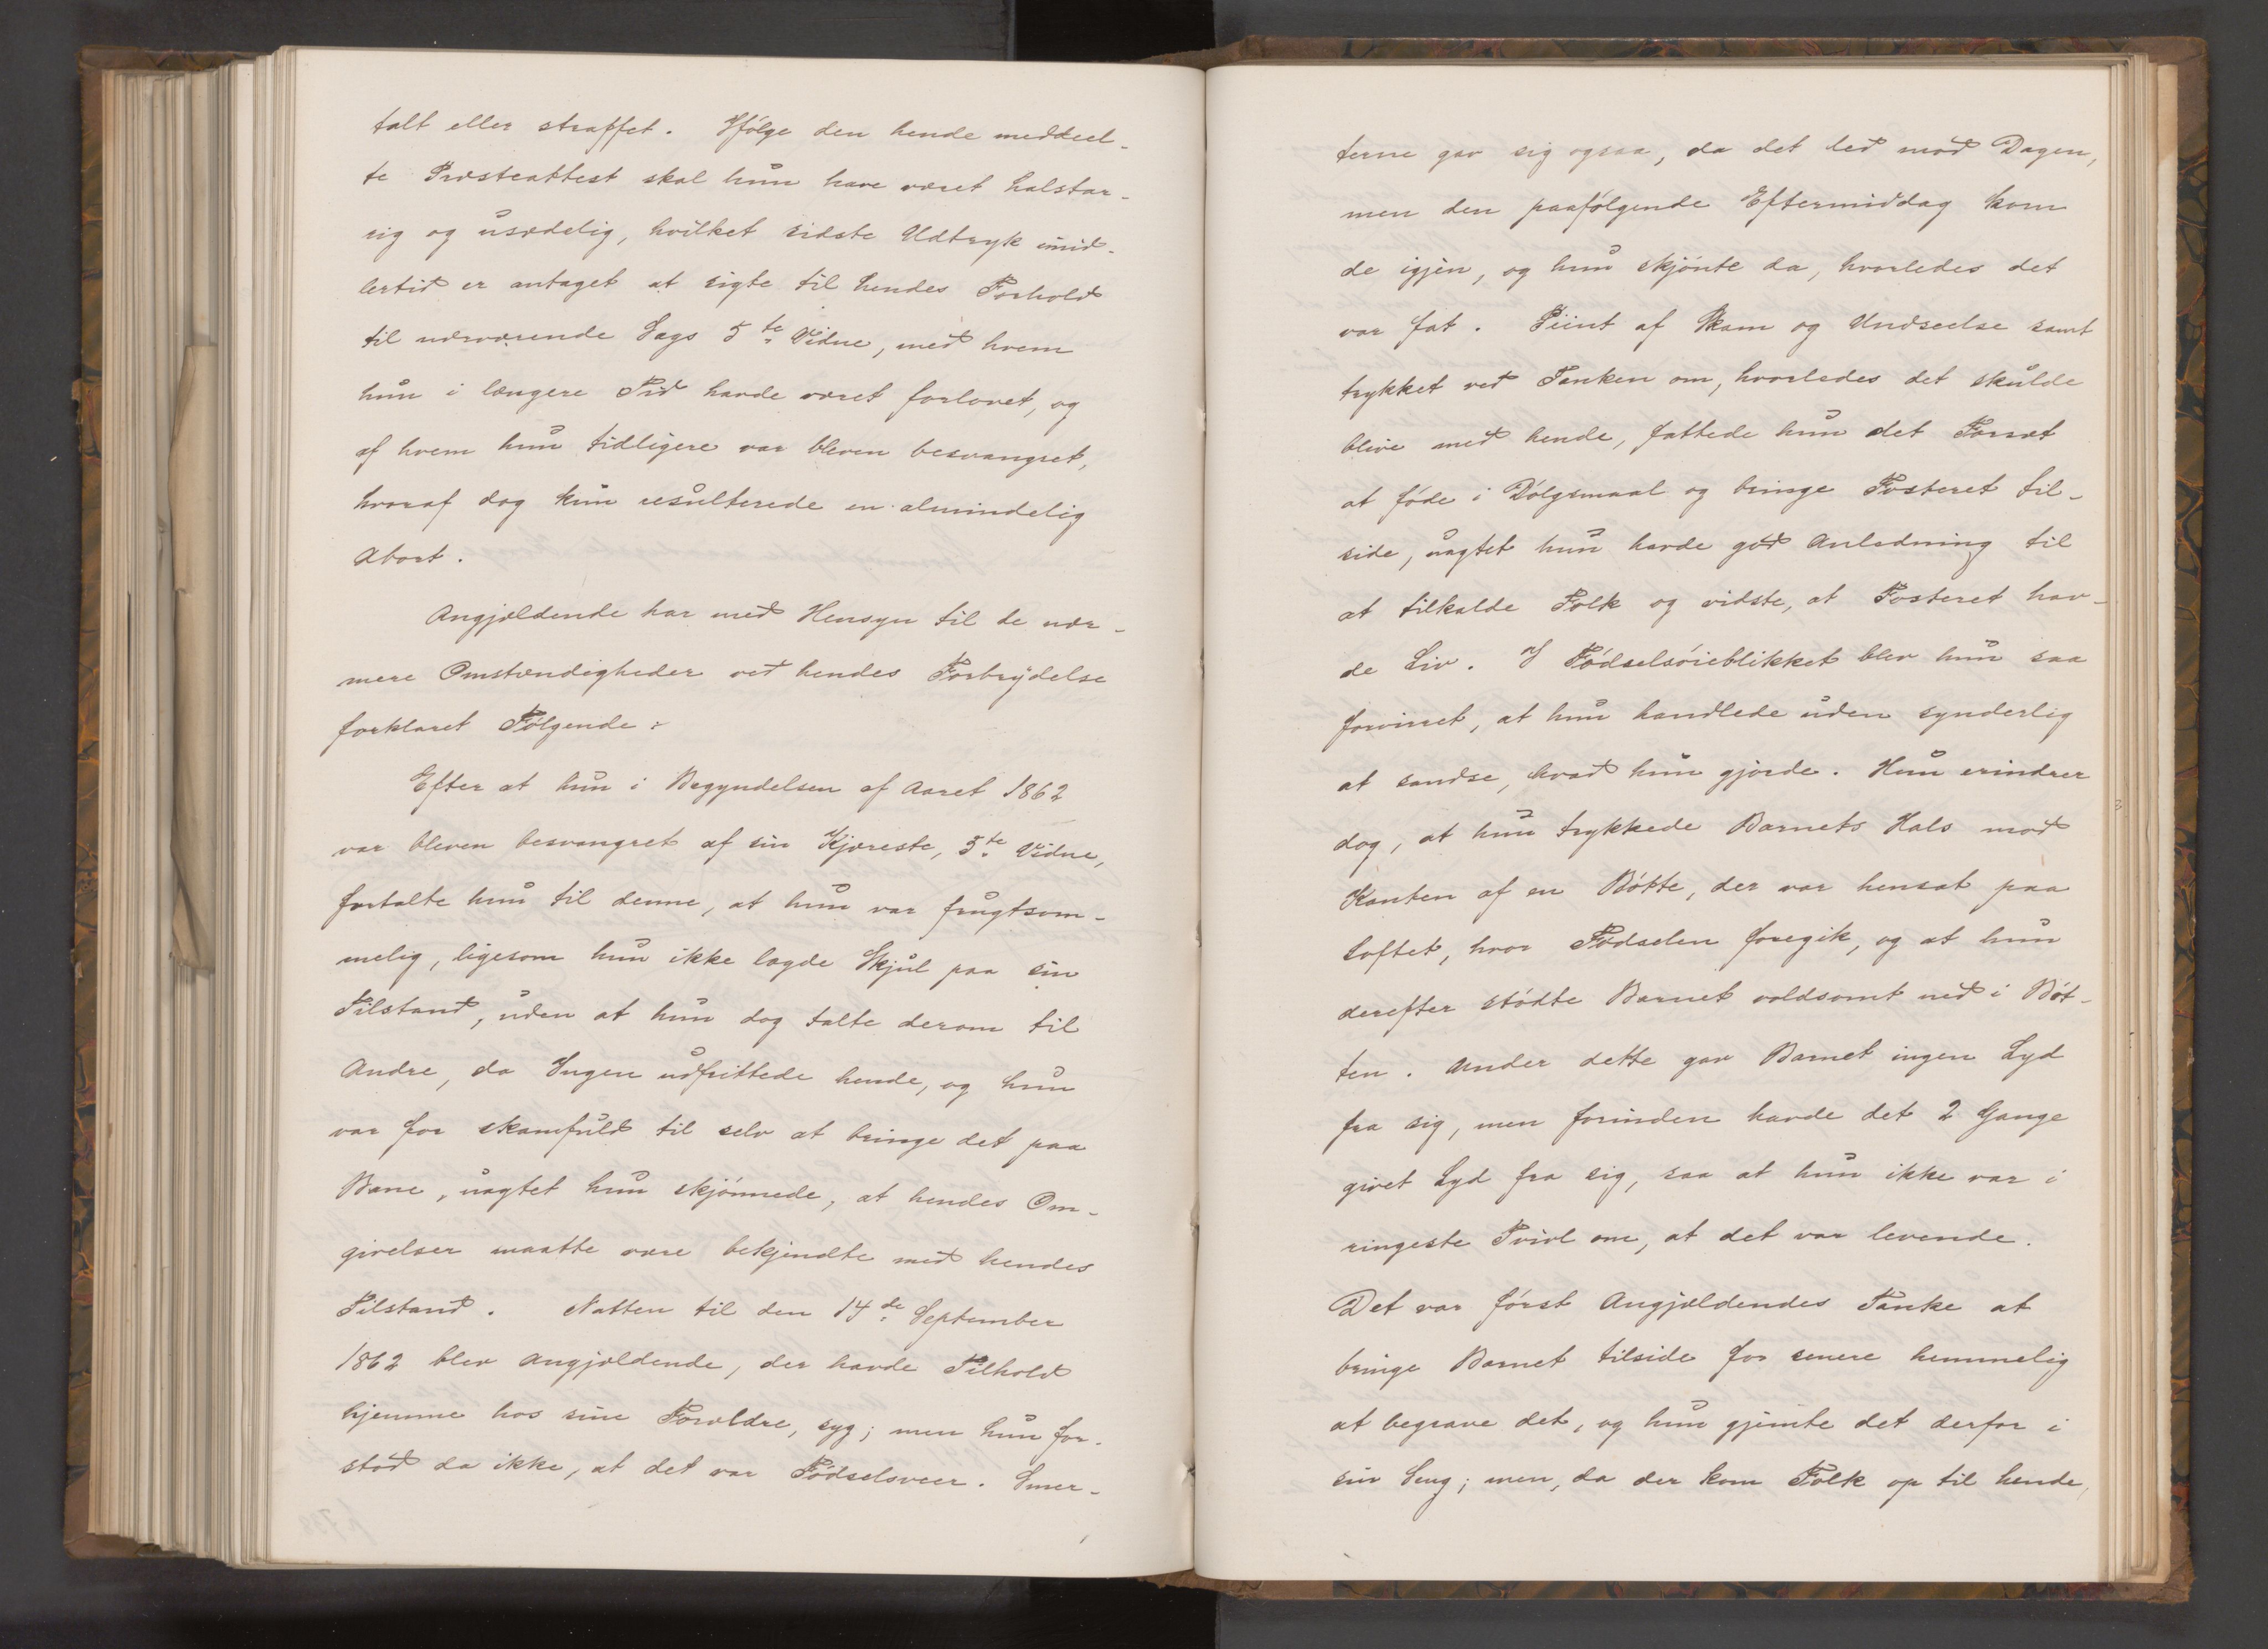 talt eller straffet. Ifølge den hende meddeel-
te Præsteattest skal hun have været halstar-
rig og usædelig, hvilket sidste Udtryk imid-
lertid er antaget at sigte til hendes Forhold
til nærværende Sags 5te Vidne, med hvem
hun i længere Tid havde været forlovet, og
af hvem hun tidligere var bleven besvangret,
hvoraf dog kun resulterede en almindelig
Abort.
Angjældende har med Hensyn til de nær-
mere Omstændigheder ved hendes Forbrydelse
forklaret Følgende:
Efter at hun i Begyndelsen af Aaret 1862
var bleven besvangret af sin Kjæreste, 5te Vidne,
fortalte hun til denne, at hun var frugtsom-
melig, ligesom hun ikke lagde Skjul paa sin
Tilstand, uden at hun dog talte derom til
Andre, da Ingen udfrittede hende, og hun
var for skamfuld til selv at bringe det paa
Bane, uagtet hun skjønnede, at hendes Om-
givelser maatte være bekjendte med hendes
Tilstand. Natten til den 14de September
1862 blev Angjældende, der havde Tilhold
hjemme hos sine Forældre, syg; men hun for-
stod da ikke, at det var Fødselsveer. Smer-
terne gav sig ogsaa, da det led mod Dagen,
men den paafølgende Eftermiddag kom
de igjen, og hun skjønte da, hvorledes det
var fat. Piint af Skam og Undseelse samt
trykket ved Tanken om, hvorledes det skulde
blive med hende, fattede hun det Forsæt
at føde i Dølgsmaal og bringe Fosteret til-
side, uagtet hun havde god Anledning til
at tilkalde Folk og vidste, at Fosteret hav-
de Liv. I Fødselsøieblikket blev hun saa
forvirret, at hun handlede uden synderlig
at sandse, hvad hun gjorde. Hun erindrer
dog, at hun trykkede Barnets Hals mod
Kanten af en Bøtte, der var hensat paa
Loftet, hvor Fødselen foregik, og at hun
derefter stødte Barnet voldsomt ned i Bøt-
ten. Under dette gav Barnet ingen Lyd
fra sig, men forinden havde det 2 Gange
givet Lyd fra sig, saa at hun ikke var i
ringeste Tvivl om, at det var levende.
Det var først Angjældendes Tanke at
bringe Barnet tilside for senere hemmelig
at begrave det, og hun gjemte det derfor i
sin Seng; men, da der kom Folk op til hende,